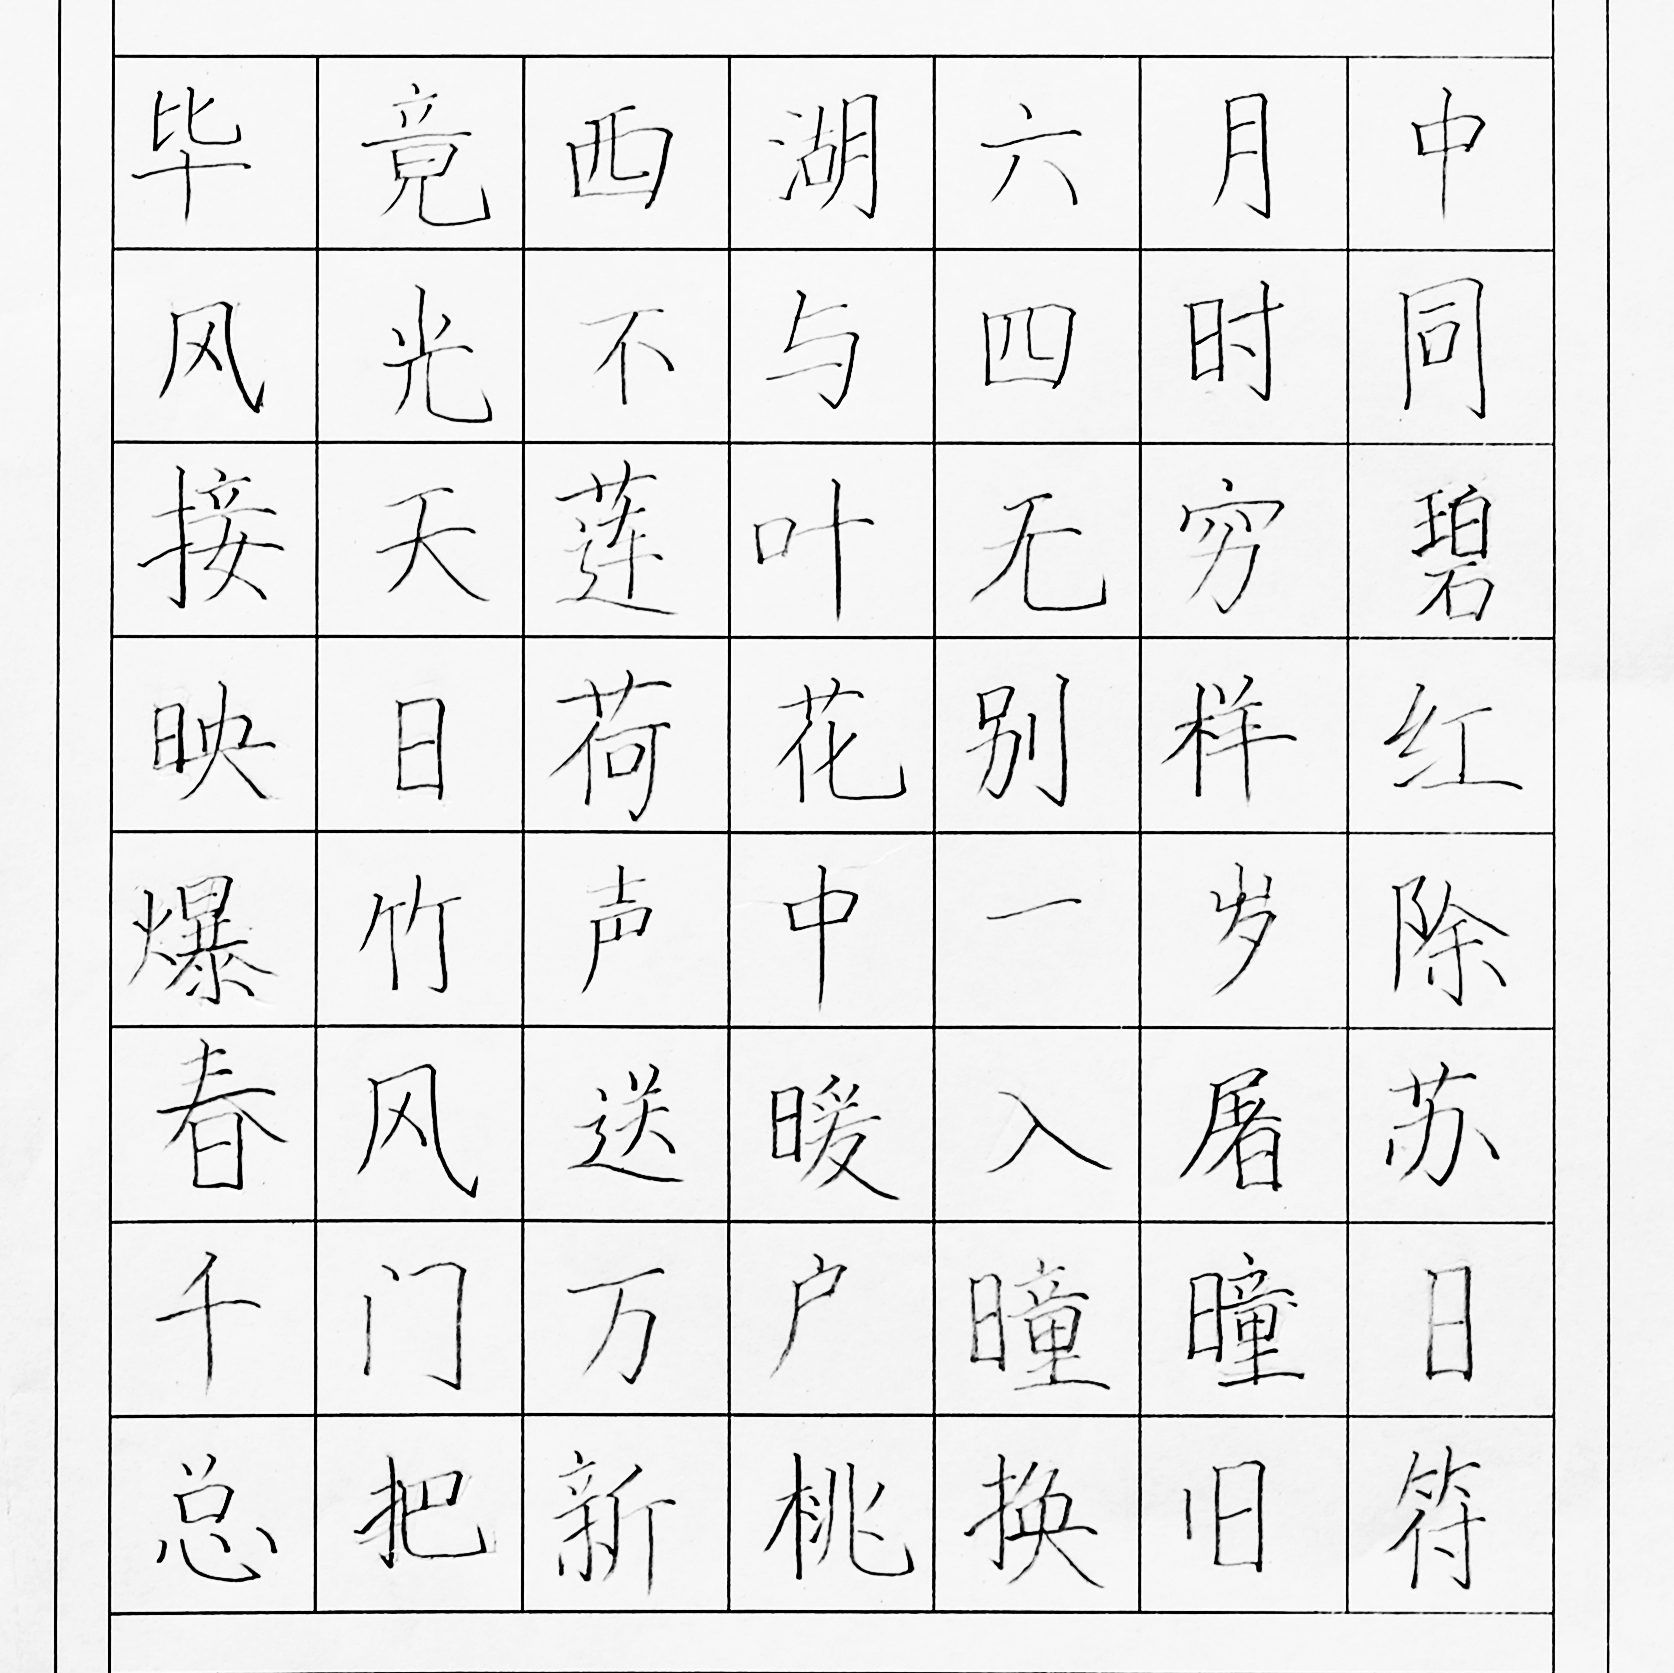 毕竟西湖六月中
风光不与四时同
接天莲叶无穷碧
映日荷花别样红
爆竹声中一岁除
春风送暖入屠苏
千门万户曈曈日
总把新桃换旧符